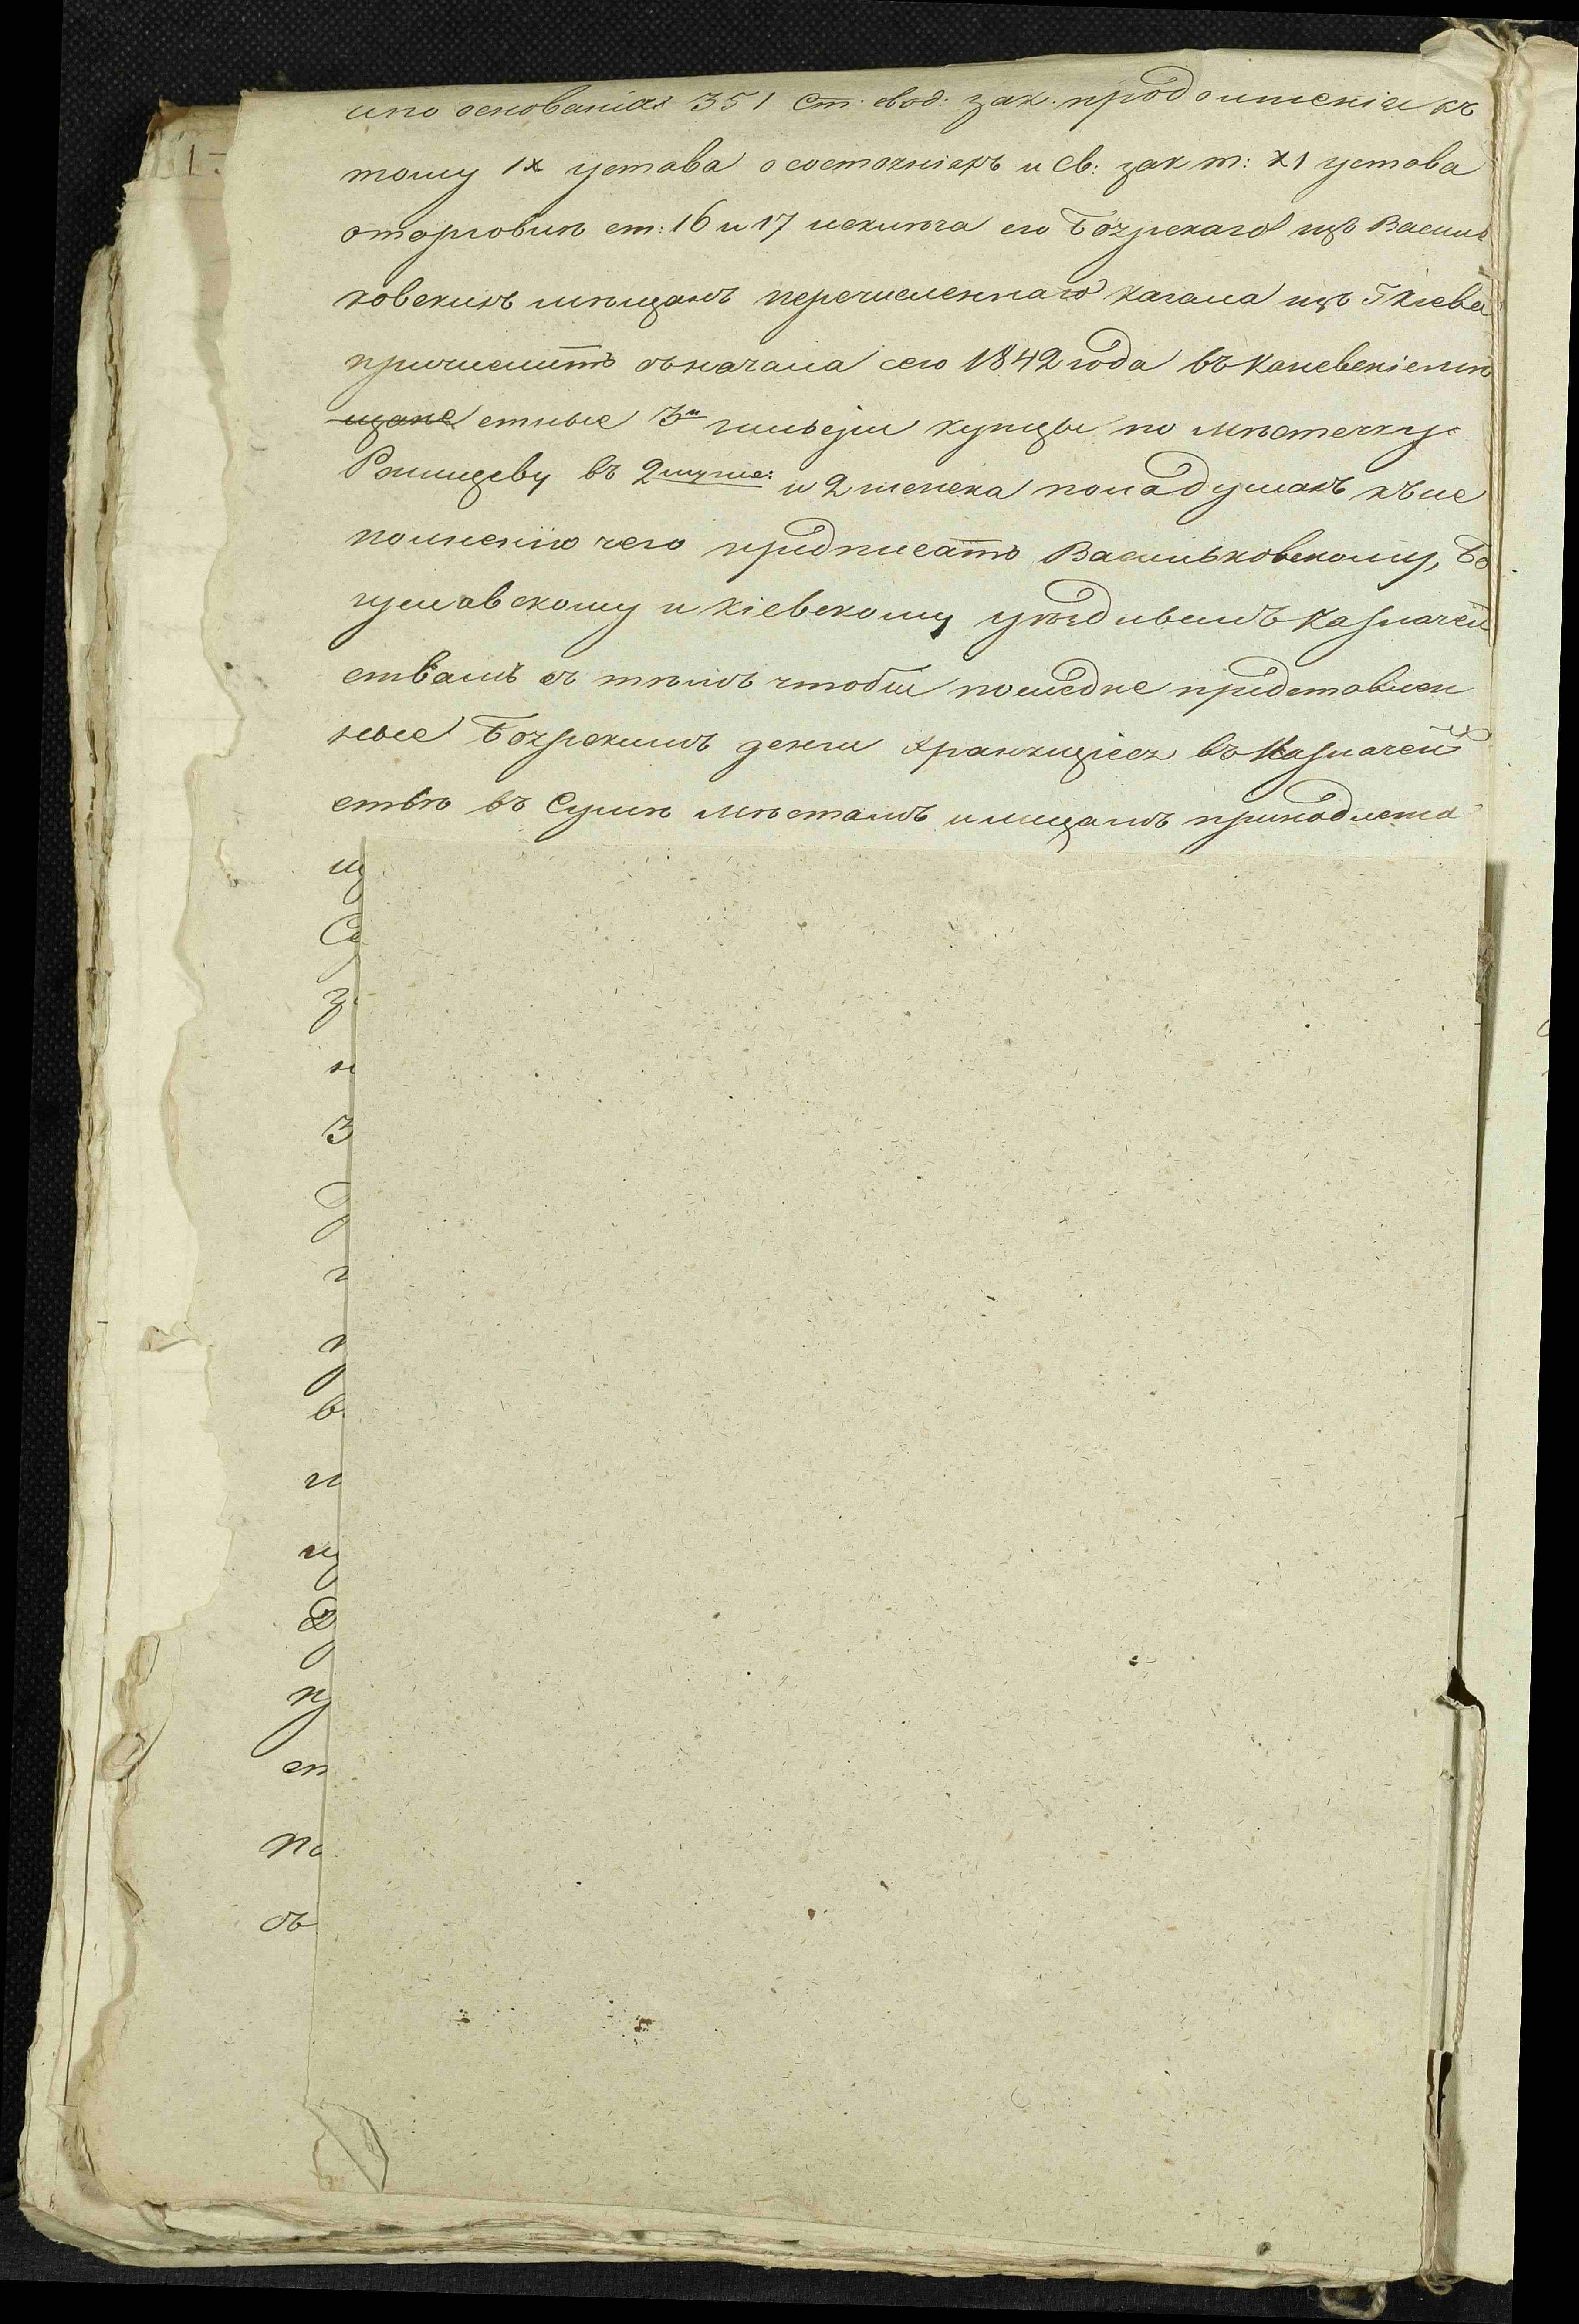 и по основанія 351 Ст. свод: зак. продолженія къ
тому IX устава о состояніяхъ и Св: зак т: XI устава
о торговлѣ ст: 16 и 17 исключа его Боярскаго изъ Василь
ковскихъ мѣщанъ перечисленнаго кагала изъ Г Кіева
причислить съ начала сего 1842 года въ Каневскіе
стные 3й гильдіи купцы по мѣстечку
Ржищеву въ 2 муже: и 2 женска пола душахъ къ ис
полненію чего предписать Васильковскому, Бо
гуславскому и Кіевскому уѣзднымъ Казначей
ствамъ съ тѣмъ чтобы последне представлен
ные Боярскимъ денги хранящіеся въ Казначей
ствѣ въ Сумѣ мѣстамъ и лицамъ принадлежа
щ
Со
з
н
З
р
г
р
в
и
щ
Д
пу
ст
по
съ